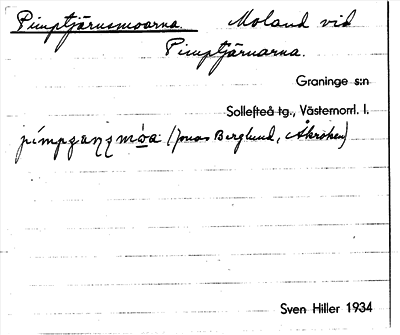 Pimptjärnsmoarna. Moland vid
Pimptjärnarna.
Graninge s:n
Sollefteå tg., Västernorrl. l.
(Jonas Berglund, Åkroken)
Sven Hiller 1934